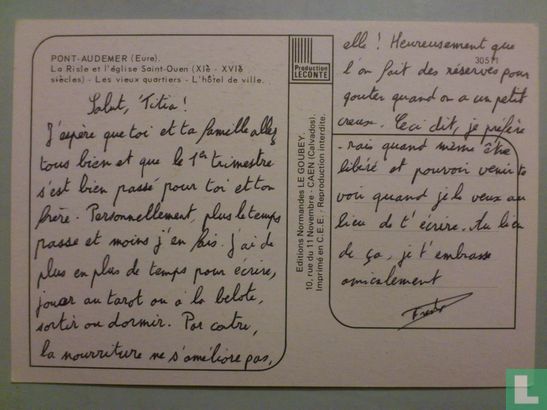 PONT-AUDEMER (Eure).
La Risle et l'église Saint-Ouen (XIè - XVIè
siècles) - Les vieux quartiers - L'hôtel de ville.
Salut, Titia !
J'espère que toi et ta famille allez
tous bien et que le 1er trimestre
s'est bien passé pour toi et ton
frère. Personnellement, plus le temps
passe et moins j'en fais. J'ai de
plus en plus de temps pour écrire,
jouer au tarot ou à la belote,
sortir ou dormir. Par contre,
la nourriture ne s'améliore pas,
Production
LECONTE
Editions Normandes LE GOUBEY.
10, rue du 11 Novembre - CAEN (Calvados).
Imprimé en C.E.E. / Reproduction interdite.
30511
elle ! Heureusement que
l'on fait des réserves pour
gouter quand on a un petit
creux. Ceci dit, je préfére
-rais quand même être
libéré et pouvoir venir te
voir quand je le veux au
lieu de t'écrire. Au lieu
de ça, je t'embrasse
amicalement